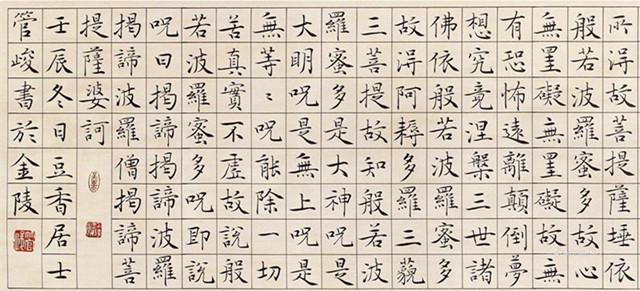 所得故菩提薩埵依
般若波羅蜜多故心
無罣礙無罣礙故無
有恐怖遠離顛倒夢
想究竟涅槃三世諸
佛依般若波羅蜜多
故得阿耨多羅三藐
三菩提故知般若波
羅蜜多是大神呪是
大明呪是無上呪是
無等〻呪能除一切
苦真實不虛故說般
若波羅蜜多呪即說
呪曰揭諦揭諦波羅
揭諦波羅僧揭諦菩
提薩婆訶
壬辰冬日豆香居士
管峻書於金陵